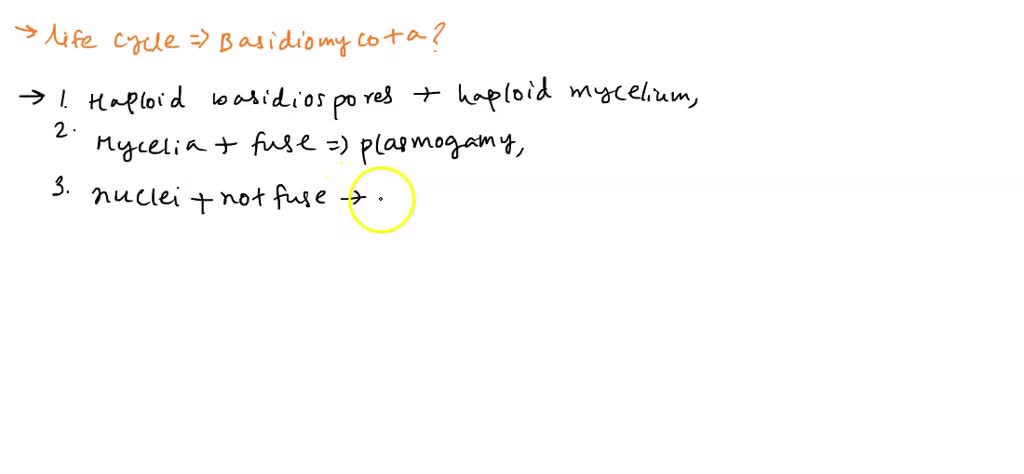 → life cycle ⇒ Basidiomycota?
→ 1. Haploid basidiospores + haploid mycelium,
2. Mycelia + fuse ⇒ plasmogamy,
3. nuclei + not fuse → .